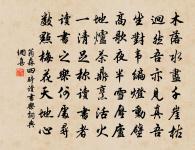 木落水盡千崖枯
迥然吾亦見真吾
坐對韋編燈動壁
高歌夜半雪壓廬
地爐茶鼎烹活火
一清足稱讀書者
讀書之樂何處尋
數點梅花天地心
翁森四時讀書樂